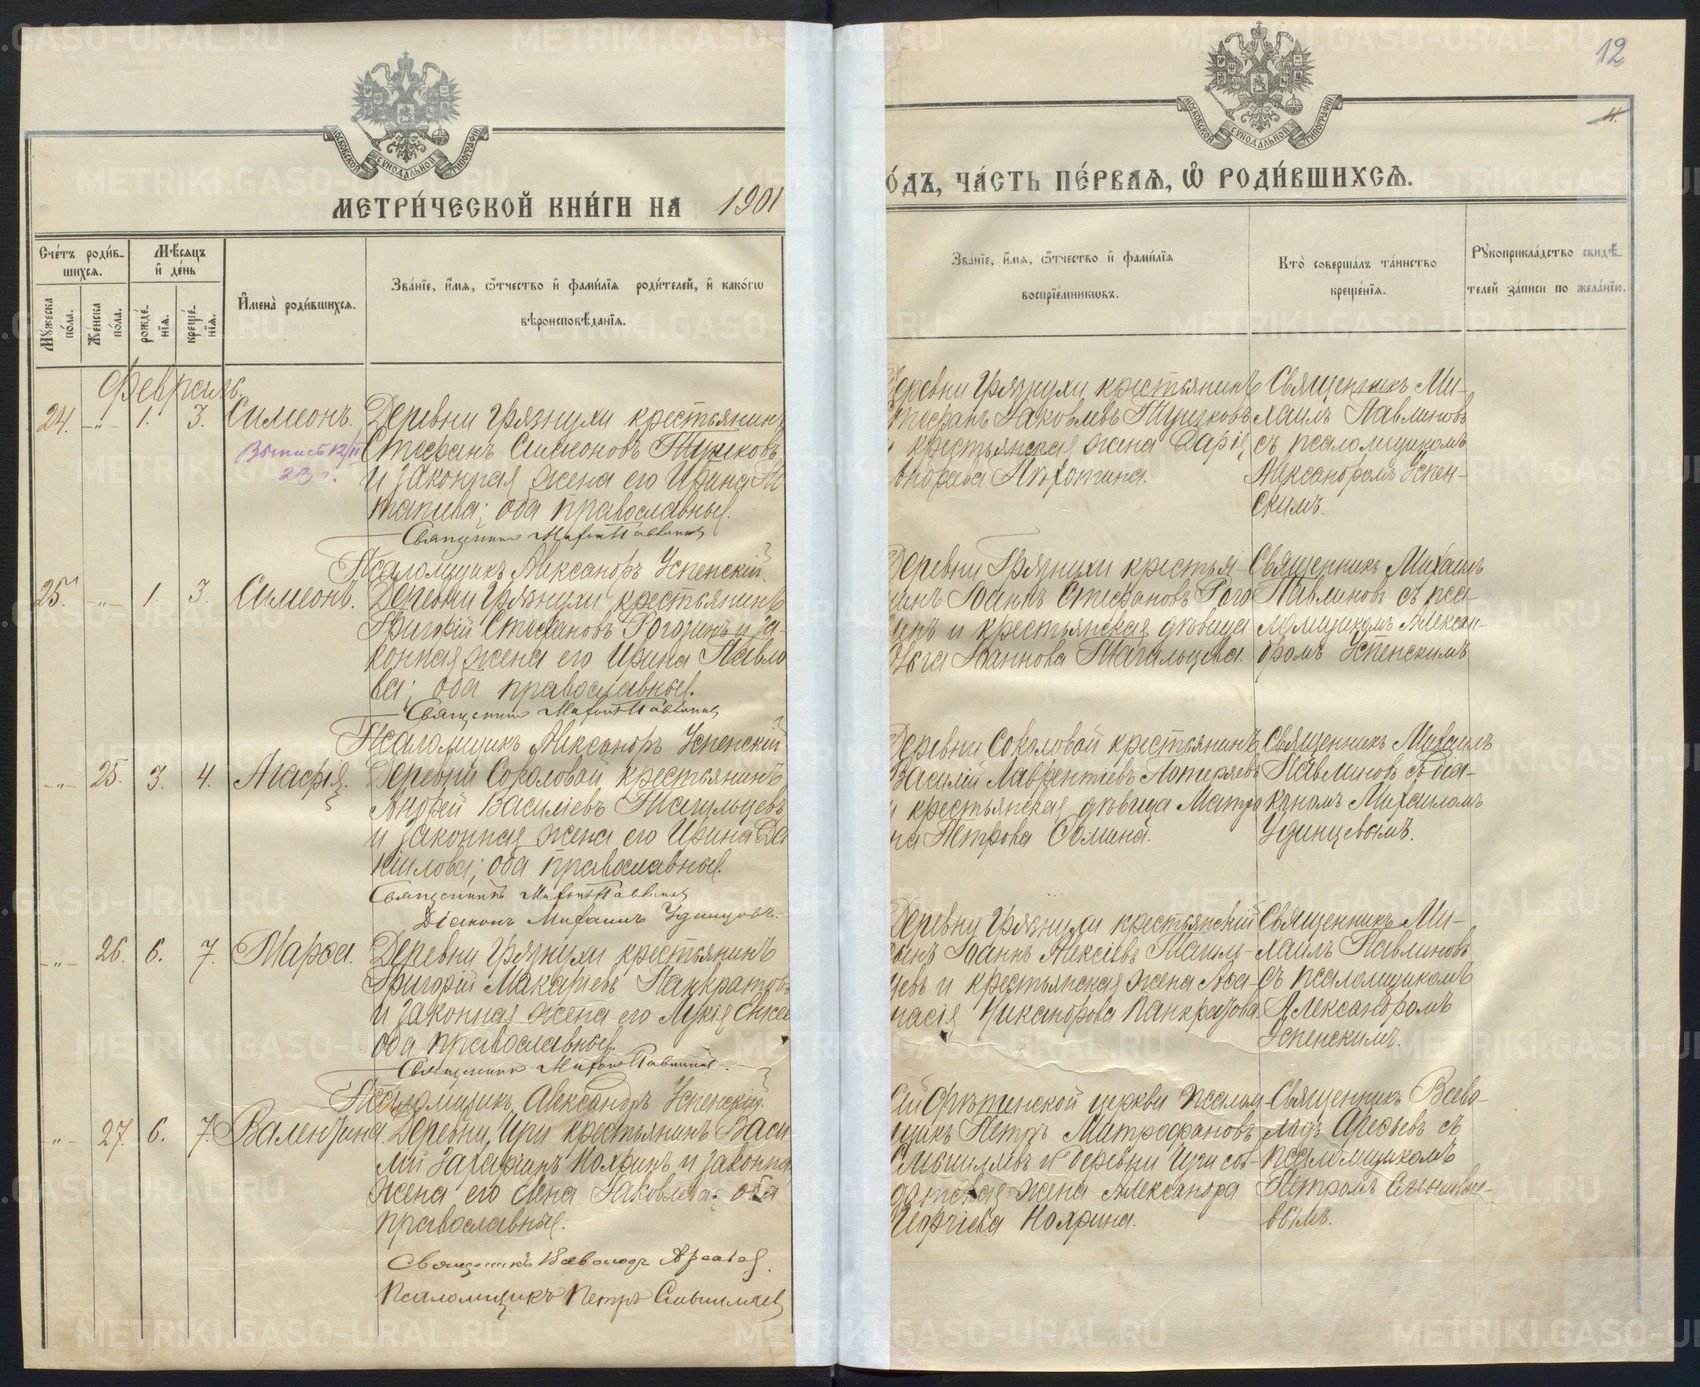 12
11.
МЕТРИ́ЧЕСКОЙ КНИ́ГИ НА 1901
О́ДЪ, ЧА́СТЬ ПЕ́РВАѦ, Ѡ҆ РОДИ́ВШИХСѦ.
Сче́тъ роди́в-
шихся.
Мѣ́сяцъ
и҆ де́нь
Мꙋ́жеска по́ла.
Же́нска по́ла.
рожде́-
нїя.
креще́-
нїя.
И҆мена̀ роди́вшихся.
Зва́нїе, и҆́мя, ѻ҆́тчество и҆ фами́лїя роди́телей, и҆ како́гѡ
вѣроисповѣ́данїя.
Зва́нїе, и҆́мя, ѻ҆́тчество и҆ фами́лїя
воспрїе́мникѡвъ.
Кто̀ соверша́лъ та́инство
креще́нїя.
Рꙋкоприкла́дство свидѣ́-
телей за́писи по жела́нїю.
Февраль
24. -"- 1. 3. Симеонъ.
Деревни Грязнухи крестьянинъ
Стефанъ Симеоновъ
и законная жена его Ирина
оба православные.
Священникъ Михаилъ Павлиновъ
Псаломщикъ Александръ Успенскій.
Деревни Грязнухи крестьянинъ
Стефанъ Іаковлевъ
и крестьянская жена Дарія
Священникъ Ми-
хаилъ Павлиновъ
съ псаломщикомъ
Александромъ Успен-
скимъ.
25. -"- 1. 3. Симеонъ.
Деревни Грязнухи крестьянинъ
Григорій Стефановъ Рогозинъ и за-
конная жена его Ирина Павло
ва; оба православные.
Священникъ Михаилъ Павлиновъ
Псаломщикъ Александръ Успенскій
Деревни Грязнухи крестья-
нинъ Іоаннъ Стефановъ Рого
инъ и крестьянская дѣвица
Іоаннова Тягильцева.
Священникъ Михаилъ
Павлиновъ съ пса-
ломщикомъ Алексан-
дромъ Успенскимъ
-"- 25. 3. 4. Агафія.
Деревни Соколовой крестьянинъ
Андрей Василіевъ Тягильцевъ
и законная жена его Ирина Да
нилова; оба православные.
Священникъ Михаилъ Павлиновъ
Діаконъ Михаилъ Удинцовъ.
Деревни Соколовой крестьянинъ
Василій Лаврентіевъ
и крестьянская дѣвица Матро
на Петрова
Священникъ Михаилъ
Павлиновъ съ діа-
кономъ Михаиломъ
Удинцевымъ.
-"- 26. 6. 7. Марфа.
Деревни Грязнухи крестьянинъ
Григорій Макаріевъ Панкратовъ
и законная жена его Лукія
оба православные.
Священникъ Михаилъ Павлиновъ.
Псаломщикъ Александръ Успенскій
Деревни Грязнухи крестьянскій
сынъ Іоаннъ Алексіевъ Тягиль-
цевъ и крестьянская жена Ана-
Никандрова Панкратова
Священникъ Ми-
хаилъ Павлиновъ
съ псаломщикомъ
Александромъ
Успенскимъ.
-"- 27. 6. 7. Валентина.
Деревни крестьянинъ Васи-
лій Захаринъ Нояринъ и законна
жена его Елена Іаковлева; оба
православные.
Священникъ Всеволодъ Арефьев.
Псаломщикъ Петръ Смышляев
церкви псалом-
щикъ Петръ Митрофановъ
Смышляевъ и деревни
жена Александра
Георгіева Ноярина.
Священникъ Всево-
лодъ Арефьевъ съ
псаломщикомъ
Петромъ Смышляе-
вымъ.